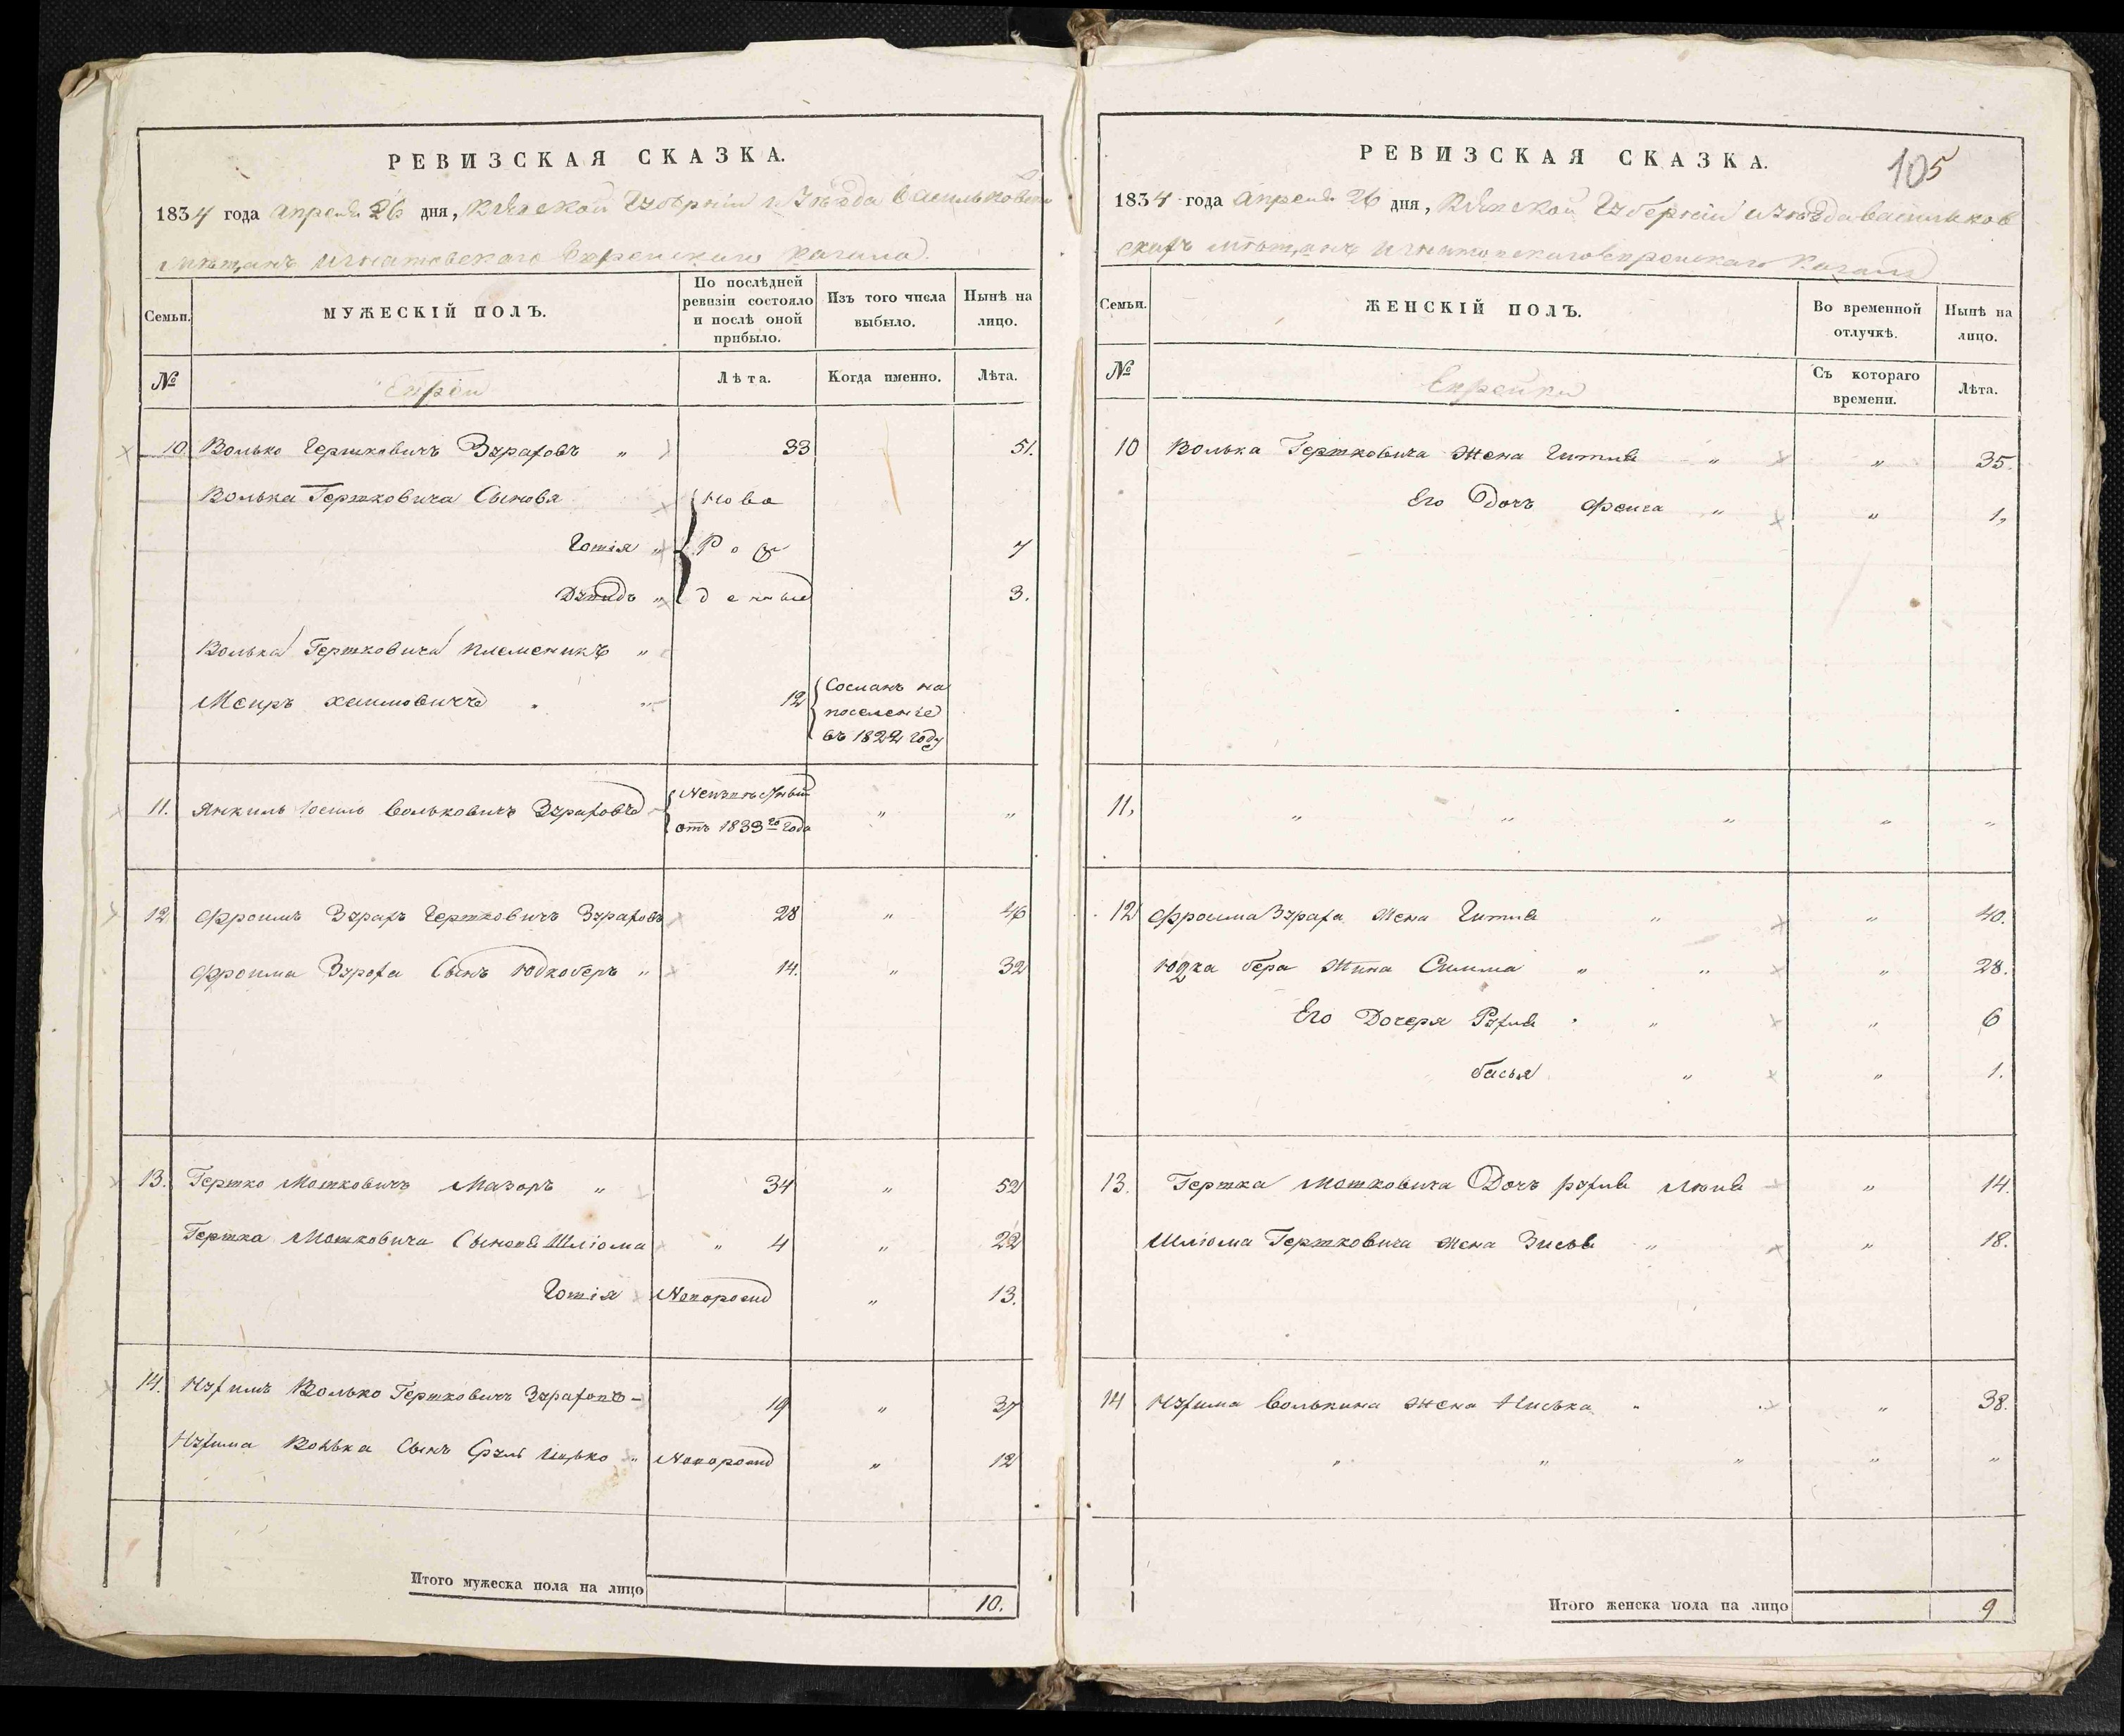 РЕВИЗСКАЯ СКАЗКА.
1834 года апреля 26 дня, Кіевской Губерніи и Уѣзда Васильковскихъ
мѣщанъ Игнатовского Еврейского Кагала.
Семьи.
МУЖЕСКІЙ ПОЛЪ.
По послѣдней ревизіи состояло и послѣ оной прибыло.
Изъ того числа выбыло.
Нынѣ на лицо.
№
Евреи
Лѣта.
Когда именно.
Лѣта.
10. Волько Гершковичъ Зурахов „ 33 51.
Волька Гершковича Сыновя ново
Готія „ Рож 7
„ денные 3.
Волька Гершковича племеникъ „
Меиръ Хаимовичъ „ 12 Сосланъ на
поселеніе
въ 1822 году
11. Янкиль Іосиль Вольковичъ Зураховъ
отъ 1833го года „ „
12. Фроимъ Зурахъ Гершковичъ Зураховъ 28 „ 46
Фроима Зураха Сынъ Юдкоберъ „ 14. „ 32
13. Гершко Мошковичъ Мазоръ „ 34 „ 52
Гершка Мошковича Сыновя Шліома „ 4 „ 22
Готія Новорожд „ 13.
14. Нухимъ Волько Гершковичъ Зураховъ 19 „ 37
Нухима Волька Сынъ Сруль Ицько „ Новорожд „ 12
Итого мужеска пола на лицо 10.
РЕВИЗСКАЯ СКАЗКА.
105
1834 года апреля 26 дня, Кіевской Губерніи и уѣзда Васильков
скихъ мѣщанъ Игнатовского Еврейского Кагала
Семьи.
ЖЕНСКІЙ ПОЛЪ.
Во временной отлучкѣ.
Нынѣ на лицо.
№
Еврейки
Съ котораго времени.
Лѣта.
10 Волька Гершковича жена Гитля „ „ 35.
Его Дочъ Фейга „ „ 1,
11, „ „ „ „ „
12 Фроима Зураха жена Гитля „ „ 40.
Юдка бера жена Сима „ „ „ 28.
Его Дочеря Рухля „ „ 6
басья „ „ 1.
13. Гершка Мошковича Дочъ рухля „ 14.
Шліома Гершковича жена Зисья „ „ 18.
14 Нухима Волькина жена Ниська „ „ 38.
„ „ „ „ „
Итого женска пола на лицо 9